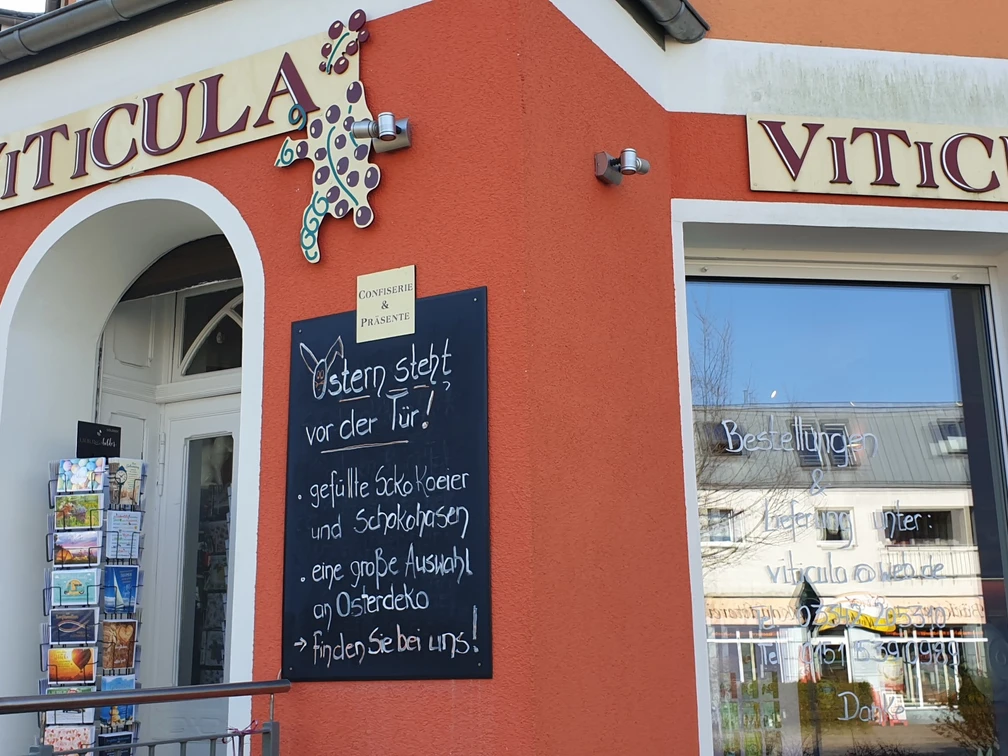 VITICULA
VITICU
CONFISERIE
&
PRÄSENTE
Ostern steht
vor der Tür!
. gefüllte Schokoeier
und Schokohasen
. eine große Auswahl
an Osterdeko
→ finden Sie bei uns!
Bestellungen
&
Lieferung unter:
viticula@web.de
Danke